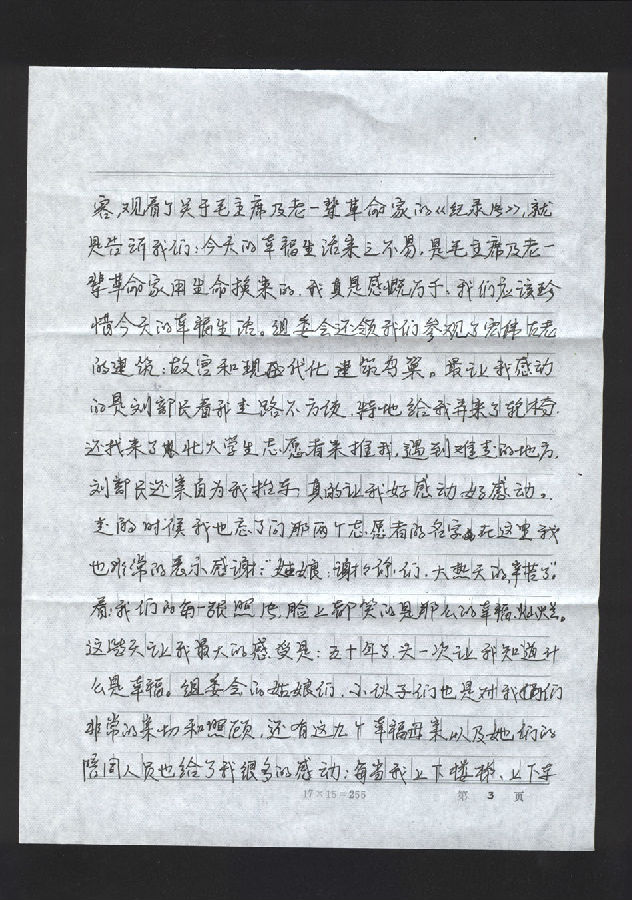 容，观看了关于毛主席及老一辈革命家的《纪录片》，就
是告诉我们：今天的幸福生活来之不易，是毛主席及老一
辈革命家用生命换来的，我真是感慨万千：我们应该珍
惜今天的幸福生活。组委会还领我们参观了宏伟古老
的建筑：故宫和现代化建筑鸟巢。最让我感动
的是刘部长看我走路不方便，特地给我弄来了轮椅，
还找来了北大学生志愿者来推我，遇到难走的地方，
刘部长还亲自为我推车，真的让我好感动好感动。
走的时候我也忘了问那两个志愿者的名字，在这里我
也非常的表示感谢：“姑娘：谢谢你们，大热天的辛苦了”。
看我们的每一张照片，脸上都笑的是那么的幸福、灿烂。
这些天让我最大的感受是：五十年了，头一次让我知道什
么是幸福。组委会的姑娘们，小伙子们也是对我们
非常的亲切和照顾，还有这九个幸福母亲以及她们的
陪同人员也给了我很多的感动：每当我上下楼梯、上下车
17×15=255
第 3 页